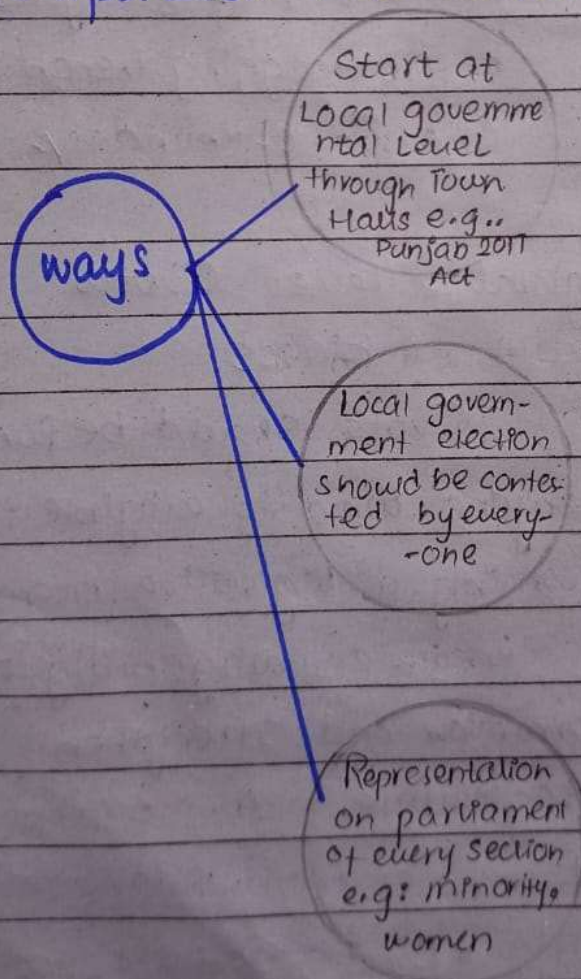 ways
Start at
Local governme
ntal Level
through Town
Halls e.g..
Punjab 2017
Act
Local govern-
ment election
should be contes
ted by every-
-one
Representation
on parliament
of every section
e.g: minority,
women